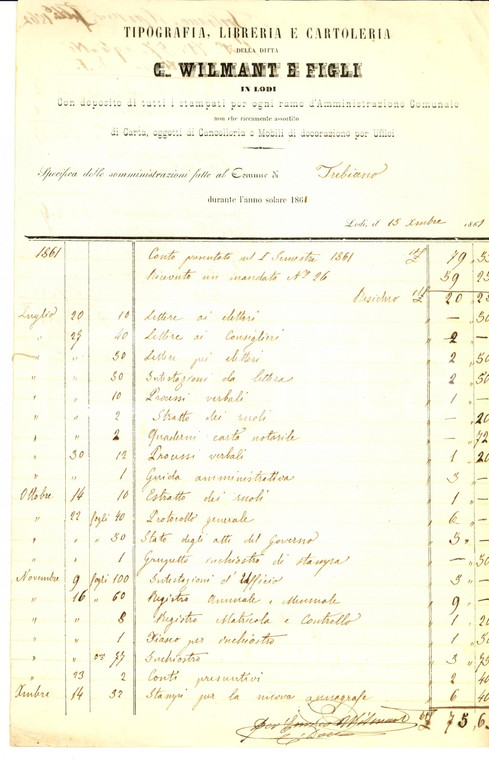 TIPOGRAFIA, LIBRERIA E CARTOLERIA
DELLA DITTA
C. WILMANT E FIGLI
IN LODI
Con deposito di tutti i stampati per ogni ramo d'Amministrazione Comunale
non che riccamente assortito
di Carta, oggetti di Cancelleria e Mobili di decorazione per Uffici
Specifica delle somministrazioni fatte al Comune di Tribiano
durante l'anno solare 1861
Lodi, il 15 Xmbre 1861
1861 Conto presentato nel I Semestre 1861 79
Ricevuto un mandato N° 26 59 25
Residuo 20 25
Luglio 20 10 Lettere ai elettori — 50
" 27 40 Lettere ai Consiglieri 2 —
" " 50 Lettere pei elettori 2 50
" " 50 Intestazioni da lettera 2 50
" " 10 Processi verbali 1 —
" " 2 Stratto dei ruoli — 20
" " 2 Quaderni carta notarile — 72
" 30 12 Processi verbali 1 20
" " 1 Guida amministrativa 3 —
Ottobre 14 10 Estratto dei ruoli 1 —
" 22 fogli 40 Protocollo generale 6 —
" " " 30 Stato degli atti del Governo 3 —
" " 1 inchiostro di stampa — 50
Novembre 9 fogli 100 Intestazioni d'Uffizio 3 —
" 16 " 60 Registro Annuale e Mensuale 9 —
" " " 8 Registro Matricola e Controllo 1 20
" " " 1 per inchiostro 1 50
" " 77 Inchiostro 3 75
" 23 2 Conti presuntivi 2 40
Xmbre 14 32 Stampi per la nuova annagrafe 6 40
Wilmant 75